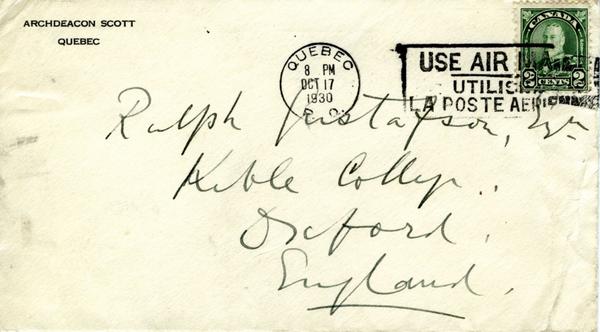 ARCHDEACON SCOTT
QUEBEC
QUEBEC
8 PM
OCT 17
1930
P.Q.
USE AIR MA
UTILIS
LA POSTE AERIENNE
CANADA
2 CENTS 2
Ralph Gustafson, Esq
Keble College,
Oxford,
England.